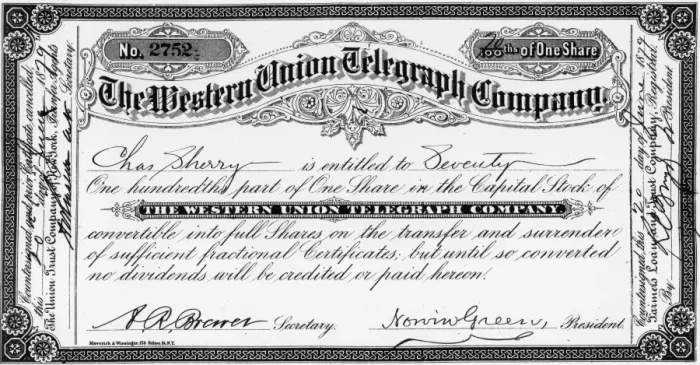 No. 2752.
70/100ths of One Share
The Western Union Telegraph Company.
Chas Sherry is entitled to Seventy
One hundredths part of One Share in the Capital Stock of
THE WESTERN UNION TELEGRAPH COMPANY
convertible into full Shares on the transfer and surrender
of sufficient fractional Certificates; but until so converted
no dividends will be credited or paid hereon.
A. R. Brewer Secretary. Norvin Green, President.
Maverick & Wissinger, 176 Fulton St. N.Y.
Countersigned and prior Certificate cancelled
this 20 day of June 1879
The Union Trust Company, New York, Transfer Agents
Secretary
Countersigned this 20 day of June 1879
Farmers Loan and Trust Company, Registrar.
By President